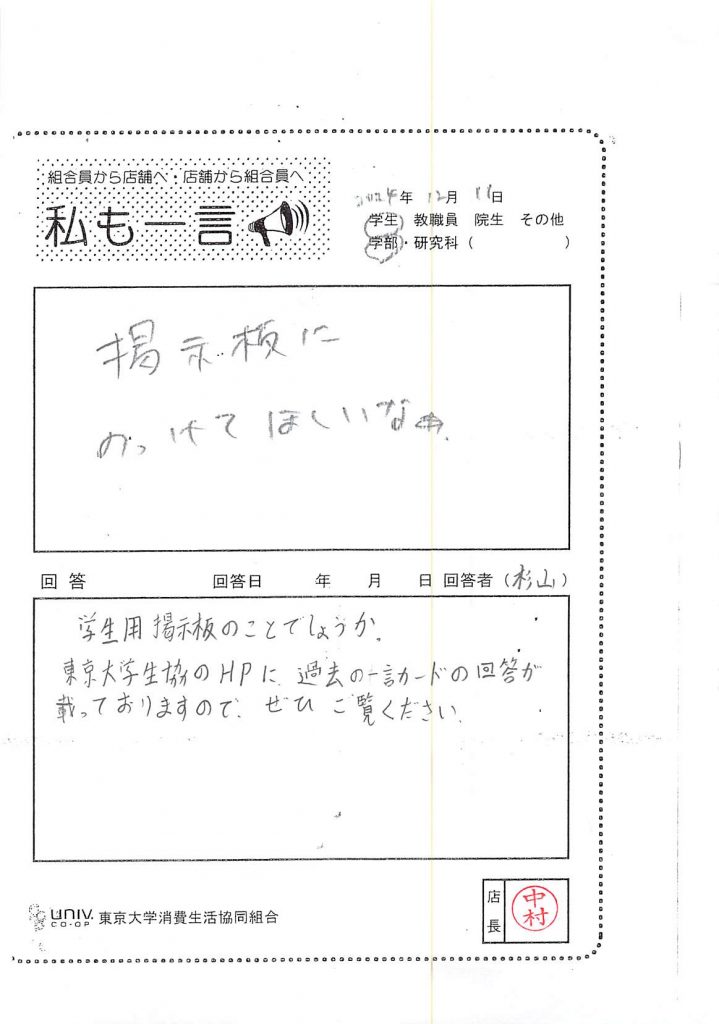 組合員から店舗へ・店舗から組合員へ
私も一言
2024年 12月 11日
学生 教職員 院生 その他
学部・研究科( )
掲示板に
のっけてほしいなあ.
回答 回答日 年 月 日 回答者(杉山)
学生用掲示板のことでしょうか。
東京大学生協のHPに、過去の一言カードの回答が
載っておりますので、ぜひご覧ください。
UNIV. CO-OP 東京大学消費生活協同組合
店長 中村